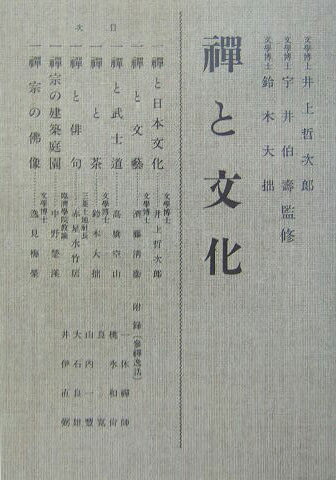 文學博士 井上哲次郎
文學博士 宇井伯壽 監修
文學博士 鈴木大拙
禪と文化
目次
一 禪と日本文化 文學博士 井上哲次郎
一 禪と文藝 文學博士 齋藤清衞
一 禪と武士道 高橋空山
一 禪と茶 文學博士 鈴木大拙
一 禪と俳句 三菱土地社長 赤星水竹居
一 禪宗の建築庭園 臨濟學院教諭 中野
一 禪宗の佛像 文學博士 逸見梅榮
附錄(參禪逸話)
一休禪師
桃水和尚
良寛
山内一豐
大石良雄
井伊直弼